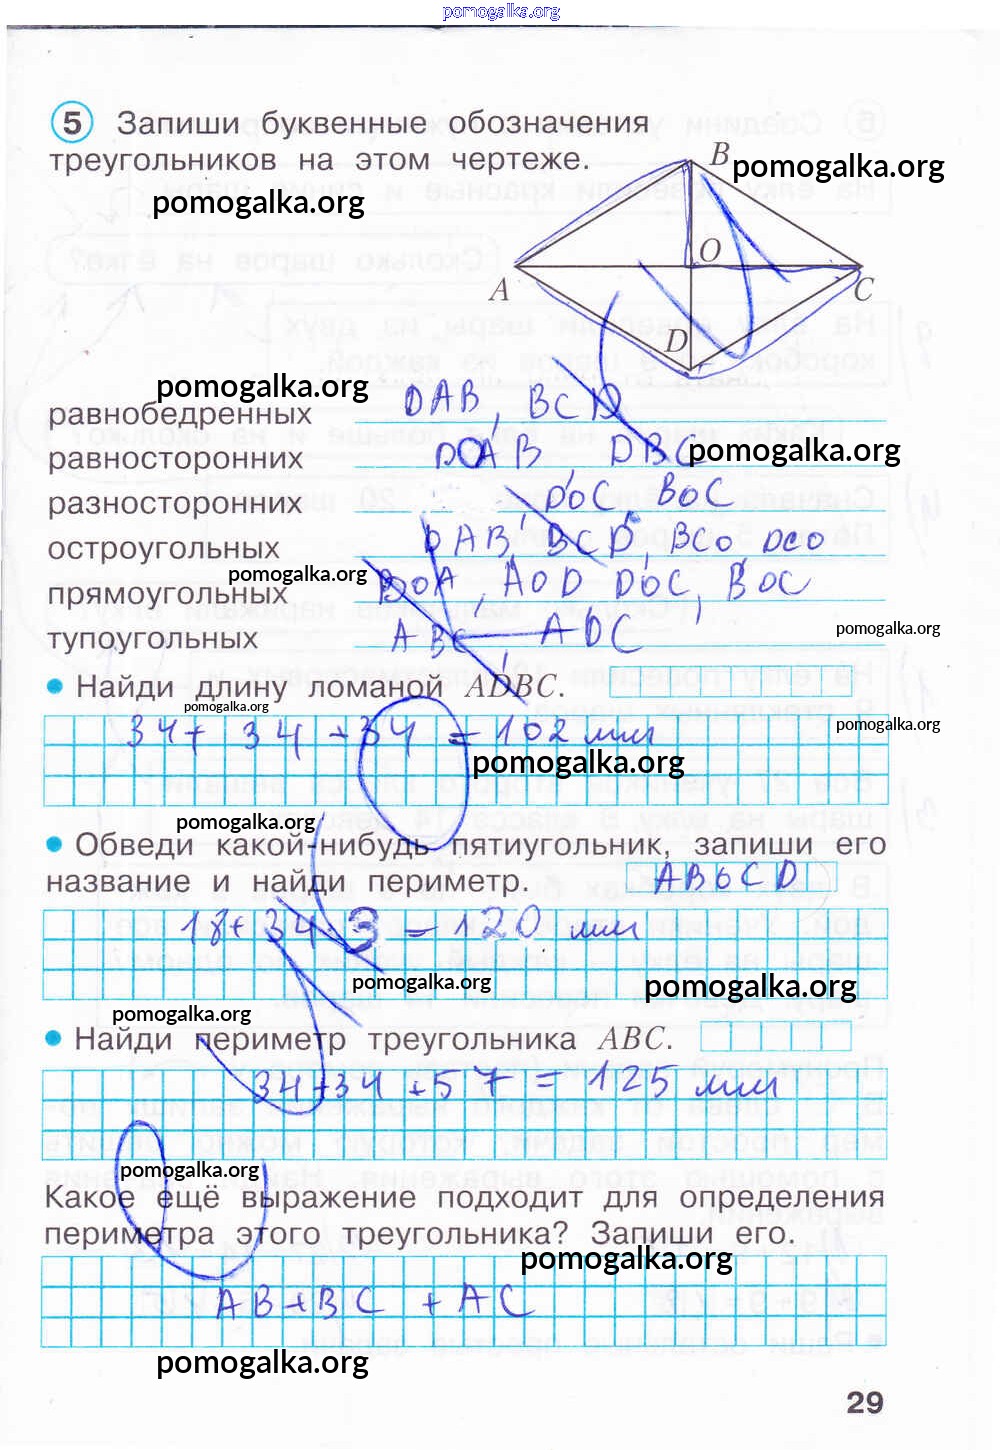 pomogalka.org
5 Запиши буквенные обозначения
треугольников на этом чертеже.
B
pomogalka.org
pomogalka.org
O
A
C
D
pomogalka.org
равнобедренных DAB, BCD
равносторонних DOAB DBC
pomogalka.org
разносторонних DOC, BOC
остроугольных DAB, BCD, BCO, DCO
pomogalka.org
прямоугольных BOA, AOD DOC, BOC
тупоугольных ABC, ADC
pomogalka.org
Найди длину ломаной ADBC.
pomogalka.org
34+ 34 +34 = 102 мм
pomogalka.org
pomogalka.org
pomogalka.org
Обведи какой-нибудь пятиугольник, запиши его
название и найди периметр. ABOCD
18+ 34 · 3 = 120 мм
pomogalka.org
pomogalka.org
pomogalka.org
Найди периметр треугольника ABC.
34+34+57 = 125 мм
pomogalka.org
Какое ещё выражение подходит для определения
периметра этого треугольника? Запиши его.
pomogalka.org
AB+BC +AC
pomogalka.org
29